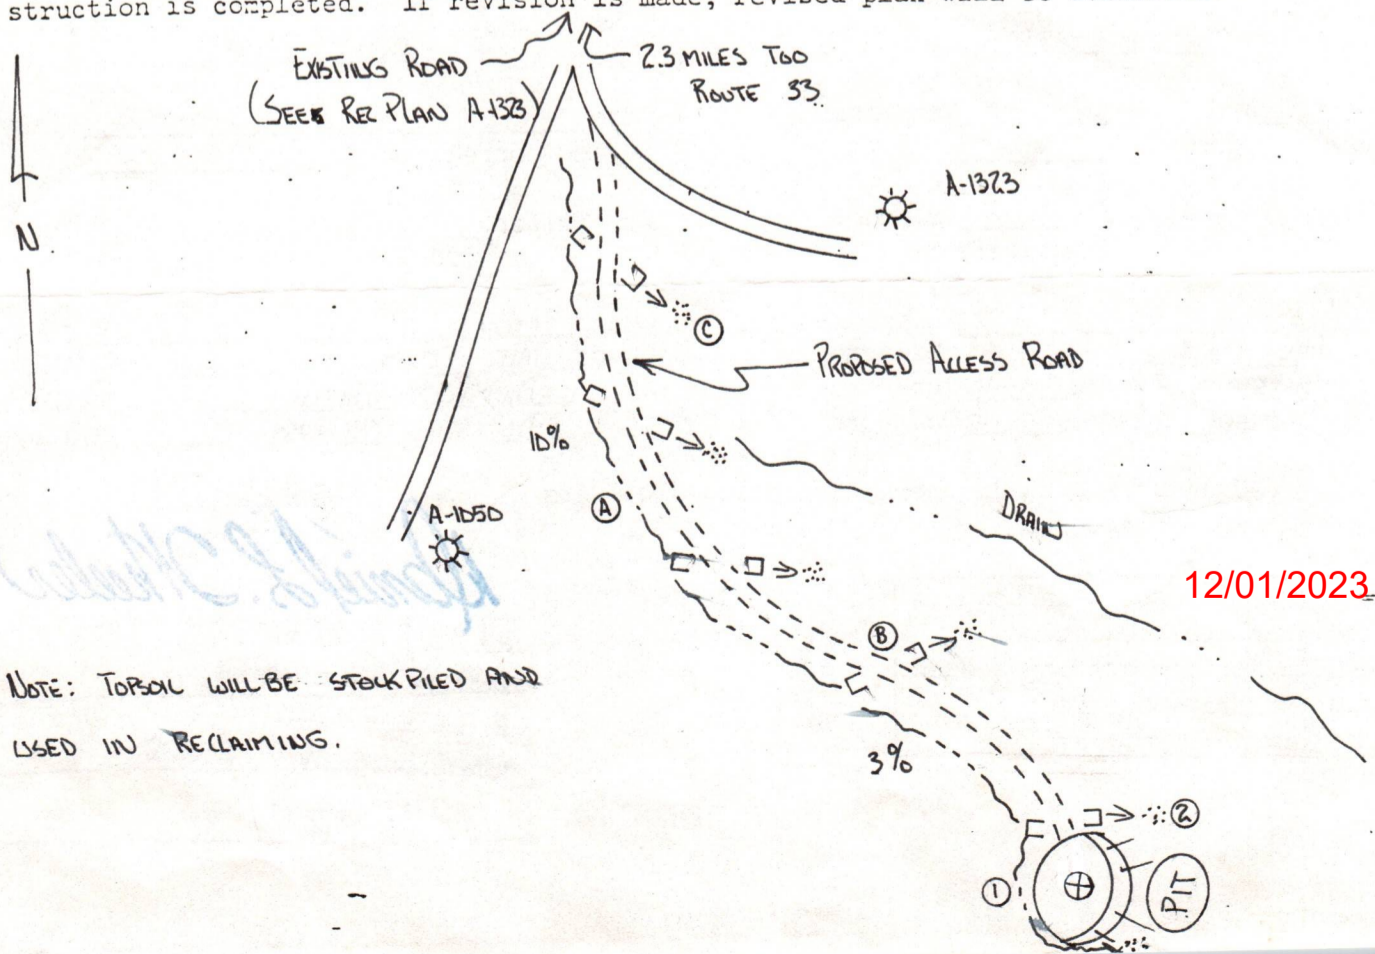 struction is completed. If revision is made, revised plan
EXISTING ROAD
(SEE REC PLAN A-1323)
2.3 MILES TOO
ROUTE 33.
A-1323
N
C
PROPOSED ACCESS ROAD
10%
A
A-1050
DRAIN
12/01/2023
B
NOTE: TOPSOIL WILL BE STOCKPILED AND
USED IN RECLAIMING.
3%
2
1
PIT